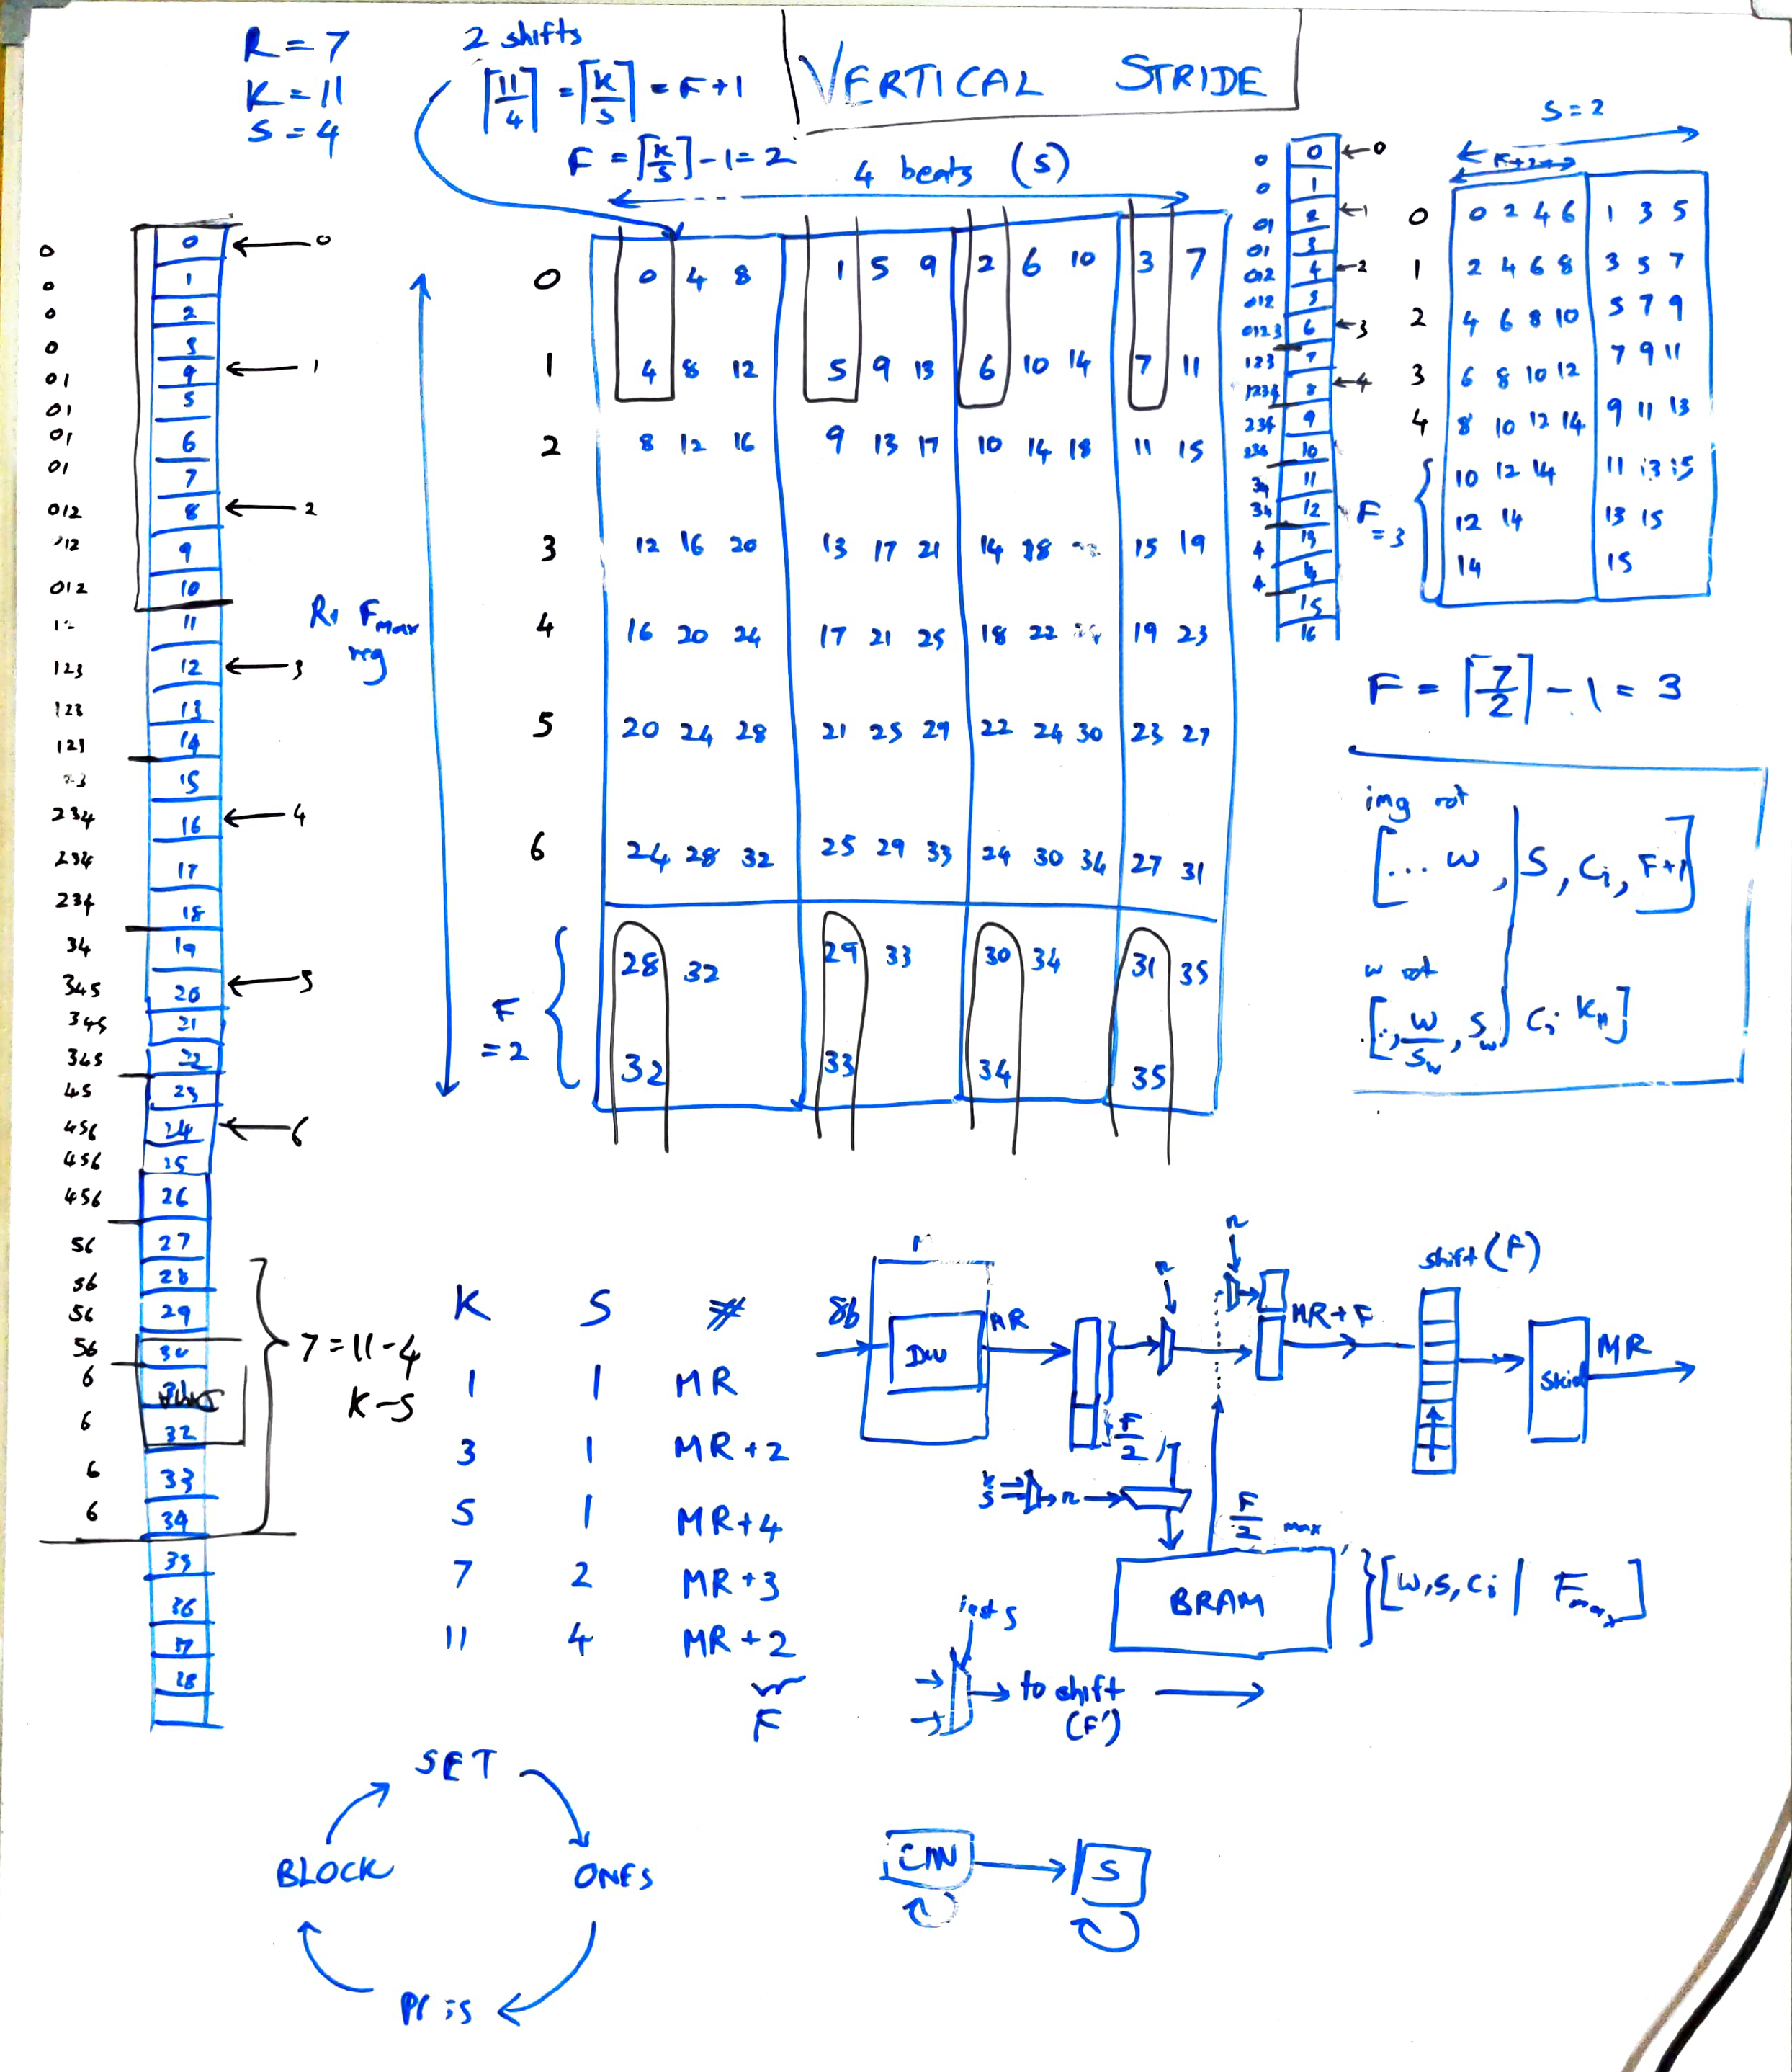 R = 7
K = 11
S = 4
2 shifts
⌈11/4⌉ = ⌈K/S⌉ = F + 1
F = ⌈K/S⌉ - 1 = 2
VERTICAL STRIDE
4 beats (S)
0 0 ← 0
0 1
0 2
0 3
01 4 ← 1
01 5
01 6
01 7
012 8 ← 2
012 9
012 10
11
123 12 ← 3
123 13
123 14
15
234 16 ← 4
234 17
234 18
34 19
345 20 ← 5
345 21
345 22
45 23
456 24 ← 6
456 25
456 26
56 27
56 28
56 29
56 30
6
6 32
6 33
6 34
35
36
37
28
7 = 11 - 4
K - S
R, Fmax
reg
0 0 4 8 1 5 9 2 6 10 3 7
1 4 8 12 5 9 13 6 10 14 7 11
2 8 12 16 9 13 17 10 14 18 11 15
3 12 16 20 13 17 21 14 18 15 19
4 16 20 24 17 21 25 18 22 19 23
5 20 24 28 21 25 29 22 24 30 23 27
6 24 28 32 25 29 33 24 30 34 27 31
28 32 29 33 30 34 31 35
32 33 34 35
F = 2
0 0 ← 0
0 1
01 2 ← 1
01 3
012 4 ← 2
012 5
0123 6 ← 3
123 7
1234 8 ← 4
234 9
10
34 11
34 12
4 13
4
15
16
S = 2
0 0 2 4 6 1 3 5
1 2 4 6 8 3 5 7
2 4 6 8 10 5 7 9
3 6 8 10 12 7 9 11
4 8 10 12 14 9 11 13
10 12 14 11 13 15
12 14 13 15
14 15
F = 3
F = ⌈7/2⌉ - 1 = 3
img rot
[... W, S, Ci, F+1]
w rot
[.., W/Sw, Sw Ci KH]
K S #
1 1 MR
3 1 MR + 2
5 1 MR + 4
7 2 MR + 3
11 4 MR + 2
F
8b
DW
n
n
MR + F
shift (F)
Skid
MR
F/2
K
S
n
F/2 max
BRAM
[W, S, Ci | Fmax]
to shift
(F')
SET
BLOCK
ONES
CIN → S